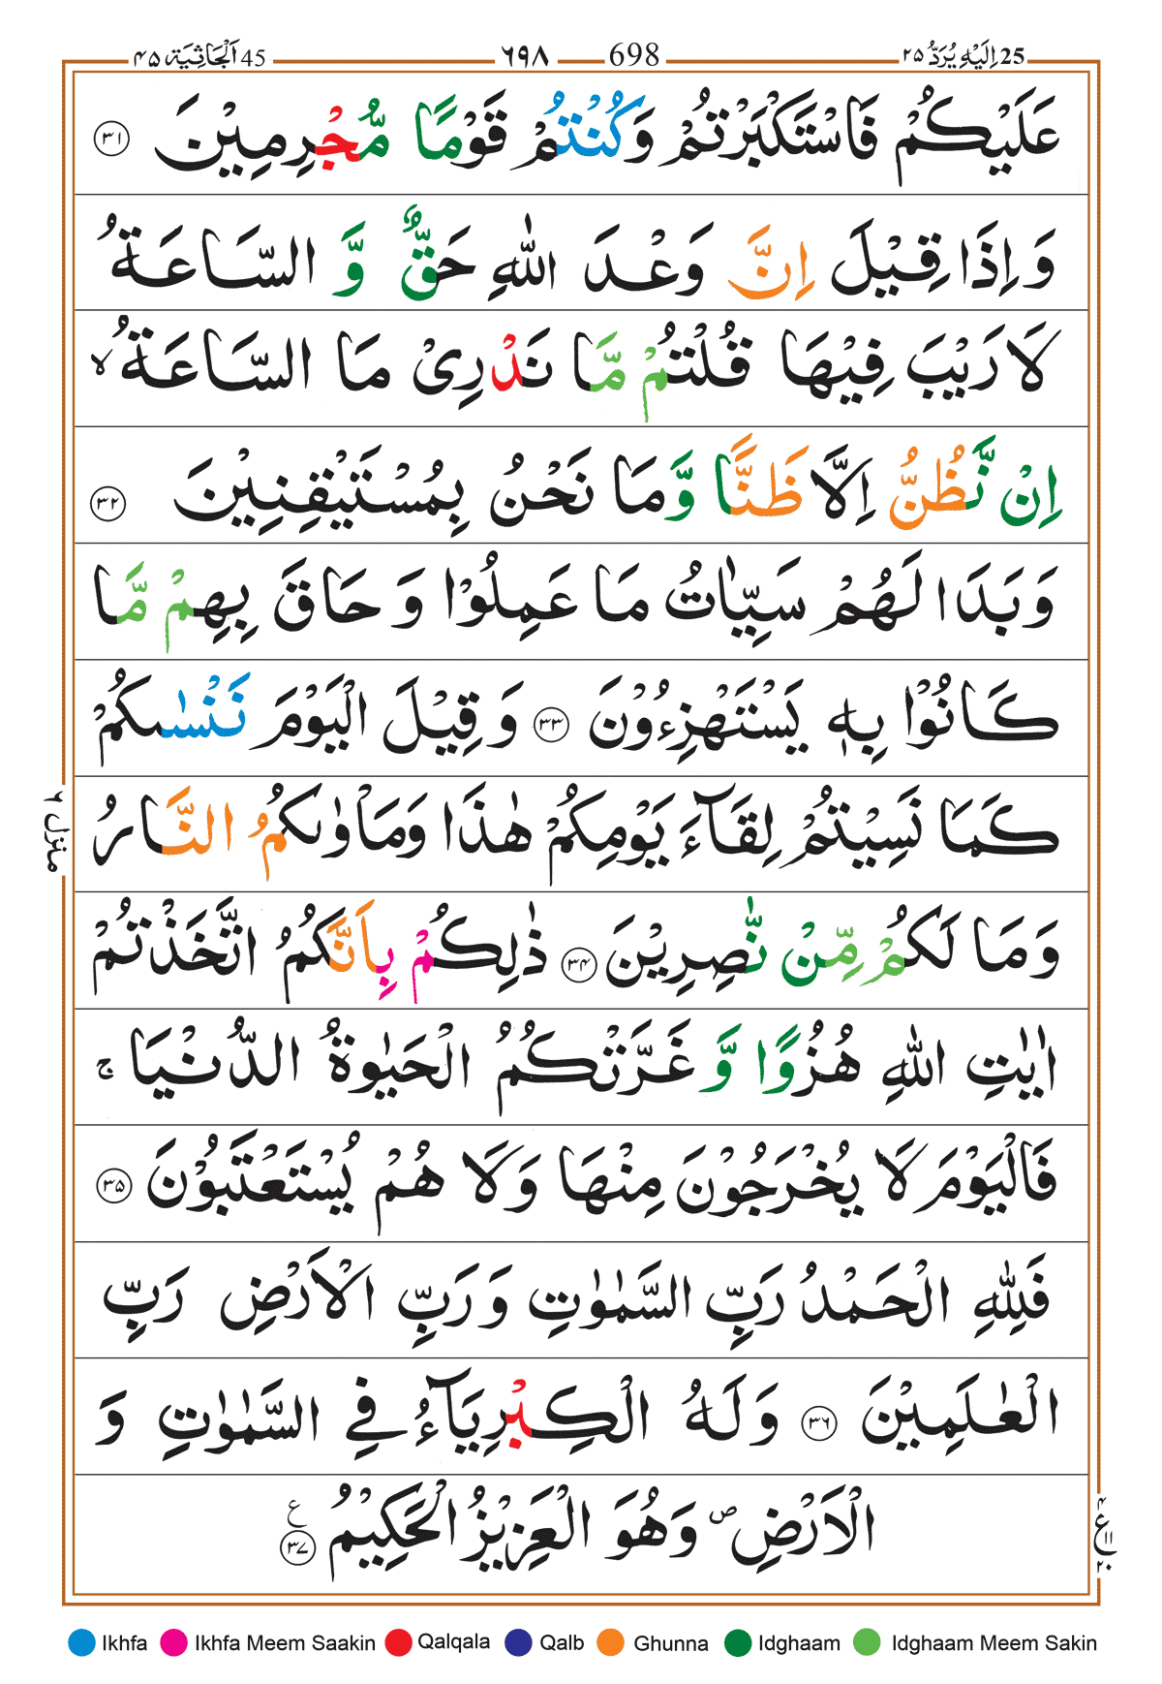 25 اِلَيْهِ يُرَدُّ ۲۵
698 ۶۹۸
45 اَلْجَاثِيَة ۴۵
عَلَيْكُمْ فَاسْتَكْبَرْتُمْ وَكُنْتُمْ قَوْمًا مُّجْرِمِيْنَ ۳۱
وَ اِذَا قِيْلَ اِنَّ وَعْدَ اللّٰهِ حَقٌّ وَّ السَّاعَةُ
لَا رَيْبَ فِيْهَا قُلْتُمْ مَّا نَدْرِىْ مَا السَّاعَةُ ۙ
اِنْ نَّظُنُّ اِلَّا ظَنًّا وَّ مَا نَحْنُ بِمُسْتَيْقِنِيْنَ ۳۲
وَ بَدَا لَهُمْ سَيِّاٰتُ مَا عَمِلُوْا وَ حَاقَ بِهِمْ مَّا
كَانُوْا بِهٖ يَسْتَهْزِءُوْنَ ۳۳ وَ قِيْلَ الْيَوْمَ نَنْسٰىكُمْ
كَمَا نَسِيْتُمْ لِقَآءَ يَوْمِكُمْ هٰذَا وَمَاْوٰىكُمُ النَّارُ
وَمَا لَكُمْ مِّنْ نّٰصِرِيْنَ ۳۴ ذٰلِكُمْ بِاَنَّكُمُ اتَّخَذْتُمْ
اٰيٰتِ اللّٰهِ هُزُوًا وَّ غَرَّتْكُمُ الْحَيٰوةُ الدُّنْيَا ۚ
فَالْيَوْمَ لَا يُخْرَجُوْنَ مِنْهَا وَلَا هُمْ يُسْتَعْتَبُوْنَ ۳۵
فَلِلّٰهِ الْحَمْدُ رَبِّ السَّمٰوٰتِ وَ رَبِّ الْاَرْضِ رَبِّ
الْعٰلَمِيْنَ ۳۶ وَ لَهُ الْكِبْرِيَآءُ فِي السَّمٰوٰتِ وَ
الْاَرْضِ ۪ وَهُوَ الْعَزِيْزُ الْحَكِيْمُ ۳۷ ع
منزل ۶
۴ ع ۱۱ ۲۰
Ikhfa Ikhfa Meem Saakin Qalqala Qalb Ghunna Idghaam Idghaam Meem Sakin